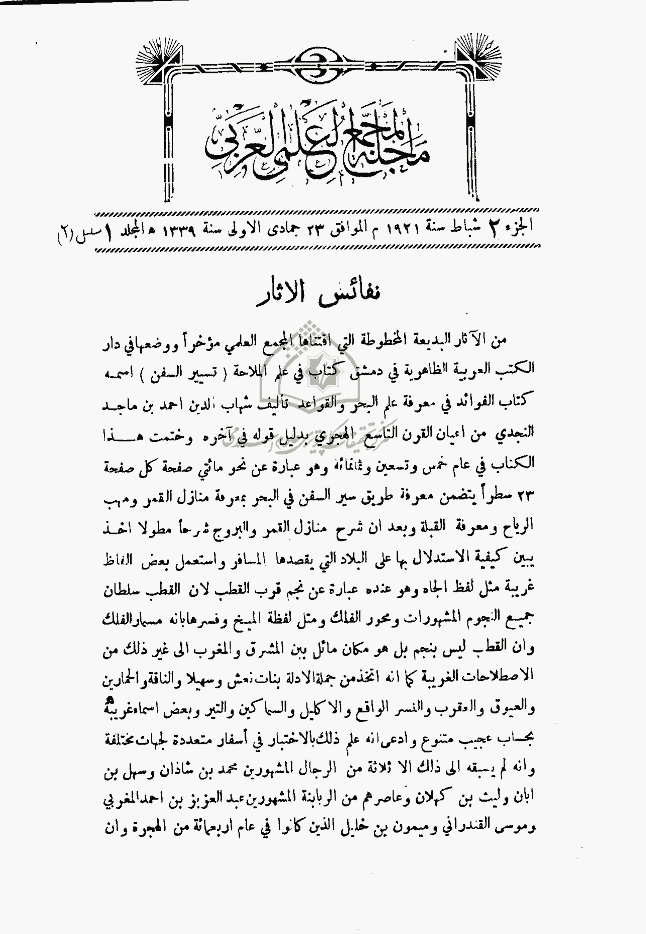 مجلة المجمع العلمي العربي
الجزء ٢ شباط سنة ١٩٢١ م الموافق ٢٣ جمادى الاولى سنة ١٣٣٩ ه المجلد ١ سلسل (٢)
نفائس الاثار
من الآثار البديعة المخطوطة التي اقتناها المجمع العلمي مؤخراً ووضعها في دار
الكتب العربية الظاهرية في دمشق كتاب في علم الملاحة ( تسيير السفن ) اسمه
كتاب الفوائد في معرفة علم البحر والقواعد تأليف شهاب الدين احمد بن ماجد
النجدي من اعيان القرن التاسع الهجري بدليل قوله في آخره وختمت هــذا
الكتاب في عام خمس وتسعين وثمانمائه وهو عبارة عن نحو مائتي صفحة كل صفحة
٢٣ سطراً يتضمن معرفة طريق سير السفن في البحر بمعرفة منازل القمر ومهب
الرياح ومعرفة القبلة وبعد ان شرح منازل القمر والبروج شرحاً مطولا اخذ
يبين كيفية الاستدلال بها على البلاد التي يقصدها المسافر واستعمل بعض الفاظ
غريبة مثل لفظ الجاه وهو عنده عبارة عن نجم قرب القطب لان القطب سلطان
جميع النجوم المشهورات ومحور الفلك ومثل لفظة الميخ وفسرها بانه مسمار الفلك
وان القطب ليس بنجم بل هو مكان مائل بين المشرق والمغرب الى غير ذلك من
الاصطلاحات الغريبة كما انه اتخذ من جملة الادلة بنات نعش وسهيلا والناقة والحمارين
والعيوق والعقوب والنسر الواقع والاكليل والسماكين والتير وبعض اسماء غريبة
بحساب عجيب متنوع وادعى انه علم ذلك بالاختبار في أسفار متعددة لجهات مختلفة
وانه لم يسبقه الى ذلك الا ثلاثة من الرجال المشهورين محمد بن شاذان وسهل بن
ابان وليث بن كهلان وعاصرهم من الربابنة المشهورين عبد العزيز بن احمد المغربي
وموسى القندراني وميمون بن خليل الذين كانوا في عام اربعمائة من الهجرة وان